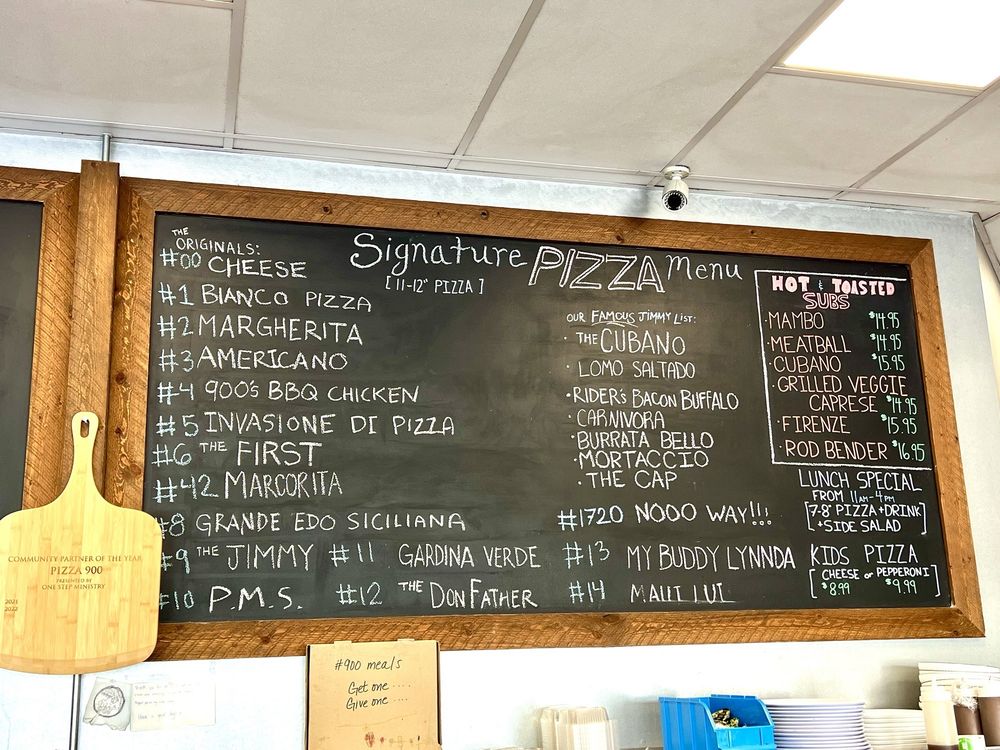 Signature PIZZA Menu
[11-12" PIZZA]
THE
ORIGINALS:
#00 CHEESE
#1 BIANCO PIZZA
#2 MARGHERITA
#3 AMERICANO
#4 900's BBQ CHICKEN
#5 INVASIONE DI PIZZA
#6 THE FIRST
#42 MARCORITA
#8 GRANDE EDO SICILIANA
#9 THE JIMMY
#10 P.M.S.
#11 GARDINA VERDE
#12 THE DON FATHER
OUR FAMOUS JIMMY LIST:
· THE CUBANO
· LOMO SALTADO
· RIDER's BACON BUFFALO
· CARNIVORA
· BURRATA BELLO
· MORTACCIO
· THE CAP
#1720 NOOO WAY!!!
#13 MY BUDDY LYNNDA
#14 MAUI LUI
HOT & TOASTED
SUBS
· MAMBO $14.95
· MEATBALL $14.95
· CUBANO $15.95
· GRILLED VEGGIE
CAPRESE $14.95
· FIRENZE $15.95
· ROD BENDER $16.95
LUNCH SPECIAL
FROM 11AM-4PM
[7-8" PIZZA + DRINK
+ SIDE SALAD]
KIDS PIZZA
[CHEESE or PEPPERONI]
$8.99 $9.99
COMMUNITY PARTNER OF THE YEAR
PIZZA 900
PRESENTED BY
ONE STEP MINISTRY
2021
2022
#900 meals
Get one ....
Give one ....